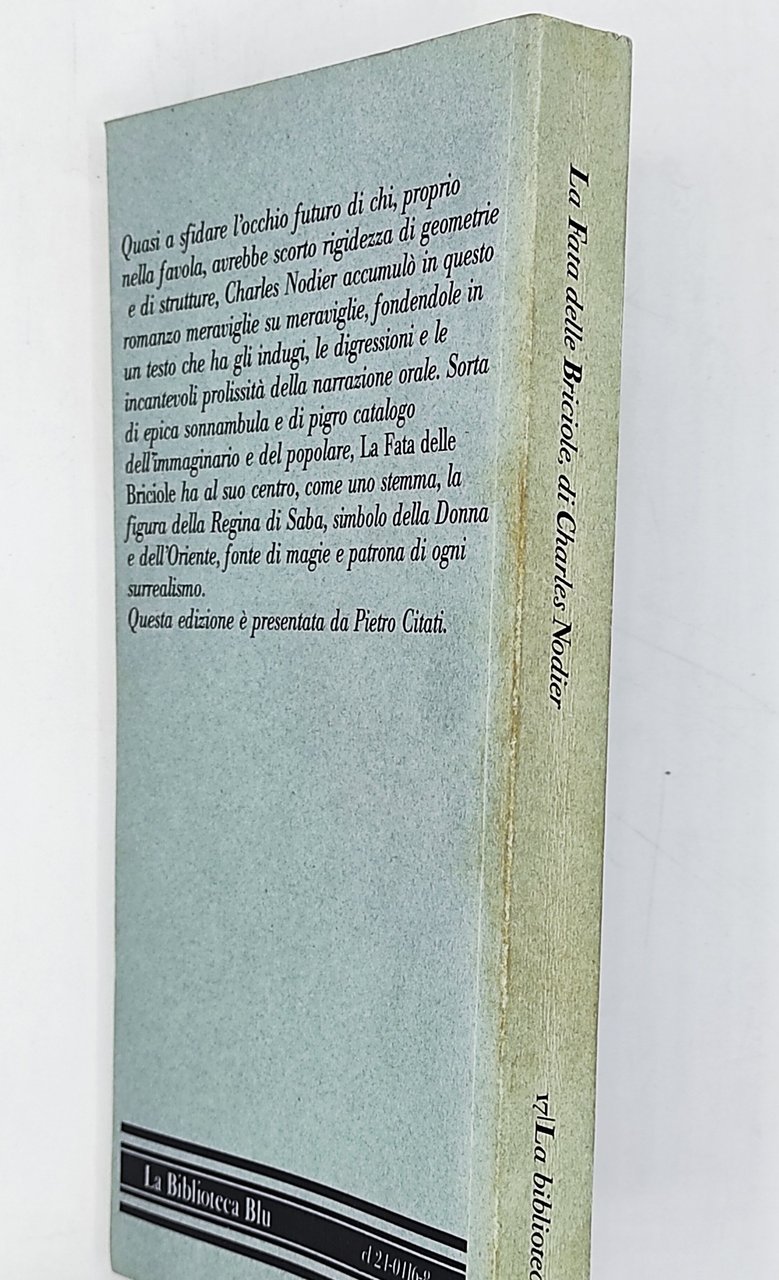 Quasi a sfidare l'occhio futuro di chi, proprio
nella favola, avrebbe scorto rigidezza di geometrie
e di strutture, Charles Nodier accumulò in questo
romanzo meraviglie su meraviglie, fondendole in
un testo che ha gli indugi, le digressioni e le
incantevoli prolissità della narrazione orale. Sorta
di epica sonnambula e di pigro catalogo
dell'immaginario e del popolare, La Fata delle
Briciole ha al suo centro, come uno stemma, la
figura della Regina di Saba, simbolo della Donna
e dell'Oriente, fonte di magie e patrona di ogni
surrealismo.
Questa edizione è presentata da Pietro Citati.
La Biblioteca Blu
cl 21-0116-8
La Fata delle Briciole, di Charles Nodier
17|La bibliotec